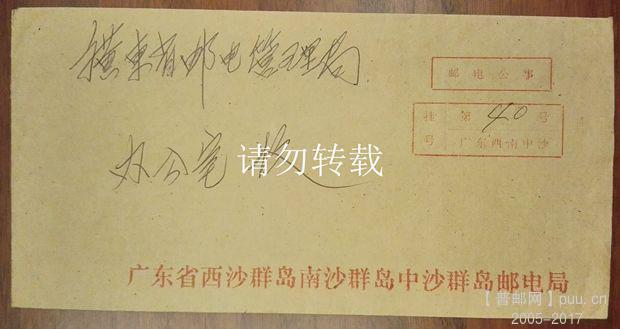 广东省邮电管理局
邮电公事
挂号 第40号
广东西南中沙
办公室 收
请勿转载
广东省西沙群岛南沙群岛中沙群岛邮电局
【普邮网】puu.cn
2005-2017